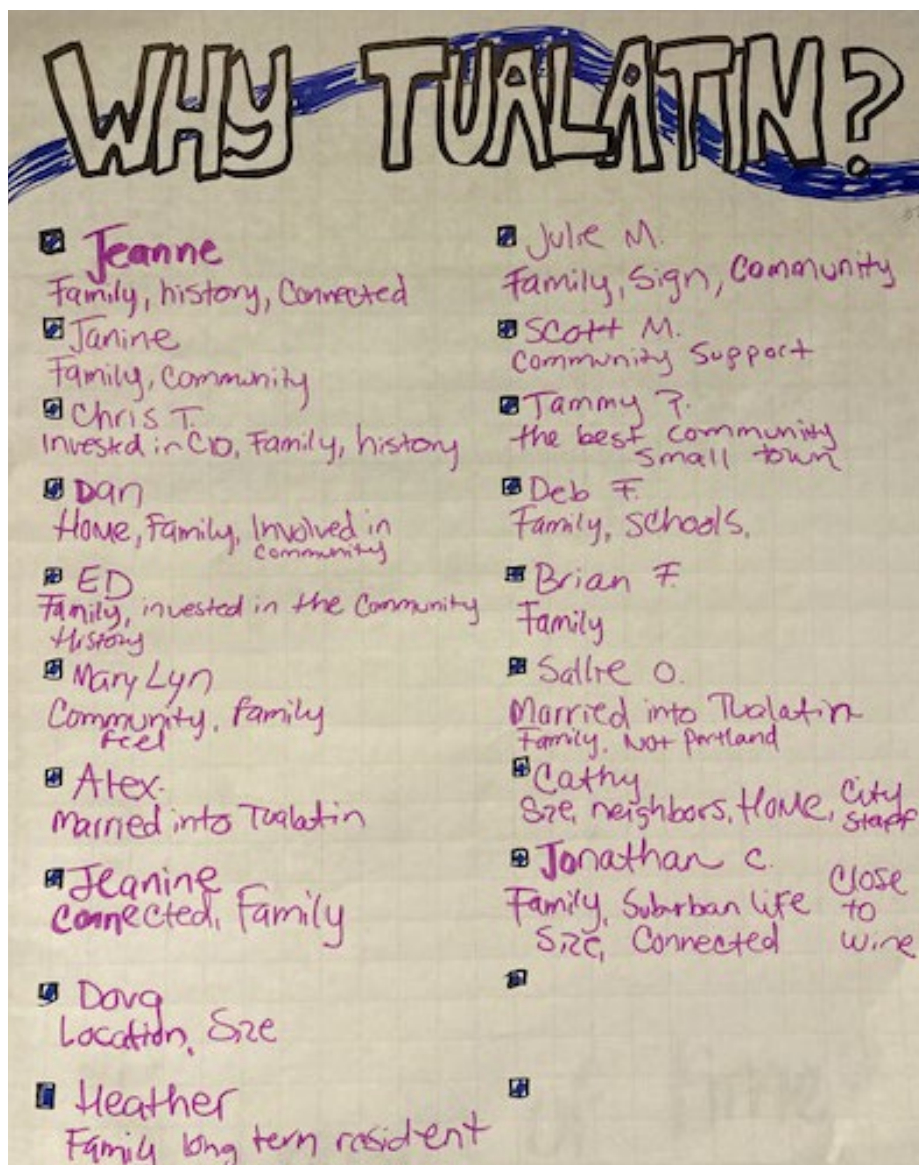 WHY TUALATIN?
Jeanne
Family, history, Connected
Janine
Family, Community
Chris T.
Invested in CIO, Family, history
Dan
Home, Family, Involved in
community
ED
Family, invested in the Community
History
Mary Lyn
Community, Family
feel
Alex
Married into Tualatin
Jeanine
Connected, Family
Doug
Location, Size
Heather
Family long term resident
Julie M.
Family, Sign, Community
Scott M.
Community Support
Tammy P.
the best community
small town
Deb F.
Family, Schools,
Brian F.
Family
Sallie O.
Married into Tualatin
Family, Not Portland
Cathy
Size, neighbors, Home, City
Staff
Jonathan C.
Family, Suburban life
Size, Connected
Close
to
wine